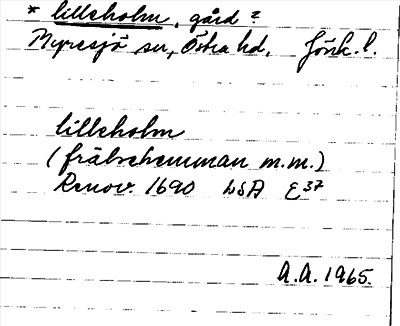 * Lilleholm, gård ?
Myresjö sn, Östra hd. Jönk. l.
Lilleholm
(frälsehemman m.m.)
Renov. 1690 LSA E 37
A.A. 1965.